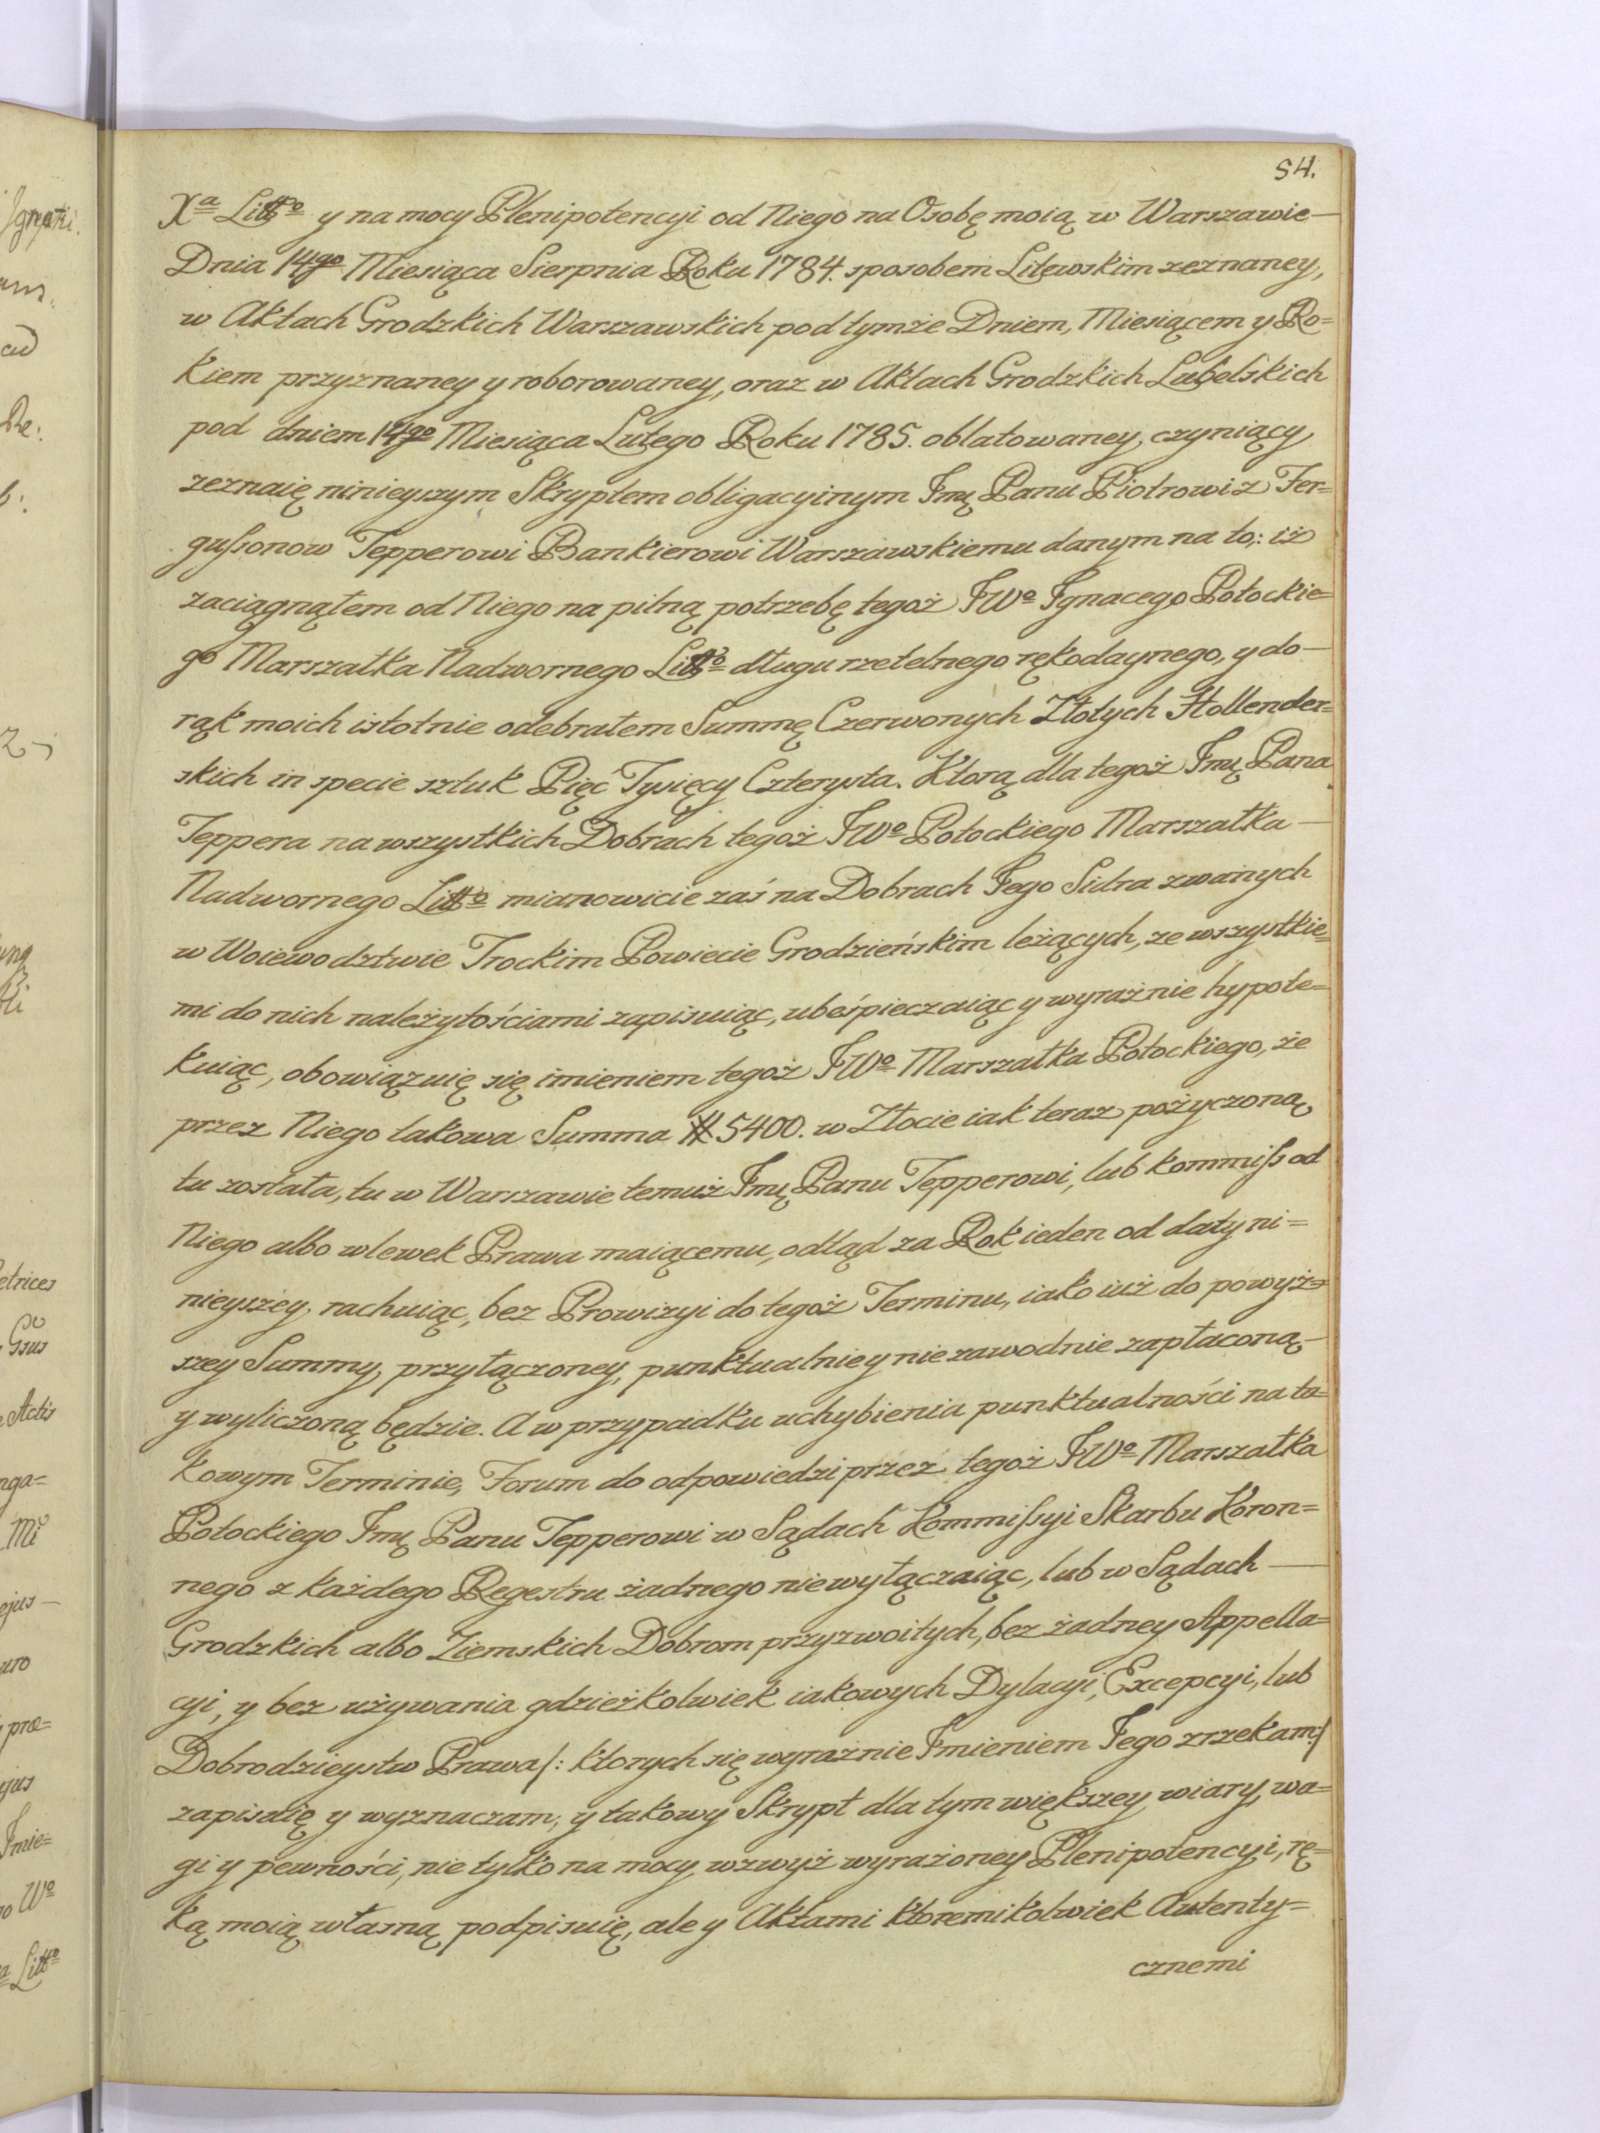 54.
Xa Litto y na mocy Plenipotencyi od Niego na Osobę moią w Warszawie—
Dnia 14go Miesiąca Sierpnia Roku 1784. sposobem Litewskim zeznaney,
w Aktach Grodzkich Warszawskich pod tymże Dniem, Miesiącem y Ro=
kiem przyznaney y roborowaney, oraz w Aktach Grodzkich Lubelskich
pod dniem 14go Miesiąca Lutego Roku 1785. oblatowaney, czyniący
zeznaię ninieyszym Skryptem obligacyinym Jmę Panu Piotrowi z Fer=
gussonow Tepperowi Bankierowi Warszawskiemu danym na to,: iż
zaciągnąłem od Niego na pilną potrzebę tegoż JWo Jgnacego Potockie=
go Marszałka Nadwornego Litto długu rzetelnego rękodaynego, y do—
rąk moich istotnie odebrałem Summę Czerwonych Złotych Hollender=
skich in specie sztuk Pięć Tysięcy Czterysta. Ktorą dla tegoż Jmę Pana
Teppera na wszystkich Dobrach tegoż JWo Potockiego Marszałka—
Nadwornego Litto mianowicie zaś na Dobrach Jego Sidra zwanych
w Woiewodztwie Trockim Powiecie Grodzieńskim leżących, ze wszystkie=
mi do nich należytościami zapisuiąc, ubeśpieczaiąc y wyraźnie hypote=
kuiąc, obowiązuię się imieniem tegoż JWo Marszałka Potockiego, że
przez Niego takowa Summa # 5400. w Złocie iak teraz pożyczoną
tu została, tu w Warszawie temuż Jmę Panu Tepperowi, lub kommiss od
Niego albo wlewek Prawa maiącemu, odtąd za Rok ieden od daty ni=
nieyszey, rachuiąc, bez Prowizyi do tegoż Terminu, iako iuż do powyż=
szey Summy, przyłączoney, punktualnie y nie zawodnie zapłaconą—
y wyliczoną będzie. A w przypadku uchybienia punktualności na ta=
kowym Terminie, Forum do odpowiedzi przez tegoż JWo Marszałka
Potockiego Jmę Panu Tepperowi w Sądach Kommissyi Skarbu Koron=
nego z każdego Regestru żadnego nie wyłączaiąc, lub w Sądach—
Grodzkich albo Ziemskich Dobrom przyzwoitych, bez żadney Appella=
cyi, y bez używania gdzieżkolwiek iakowych Dylacyi, Excepcyi, lub
Dobrodzieystw Prawa/: ktorych się wyraźnie Jmieniem Jego zrzekam:/
zapisuię y wyznaczam, y takowy Skrypt dla tym większey wiary, wa=
gi y pewności, nie tylko na mocy, wzwyż wyrażoney Plenipotencyi, rę=
ką moią własną podpisuię, ale y Aktami ktoremikolwiek Autenty=
cznemi